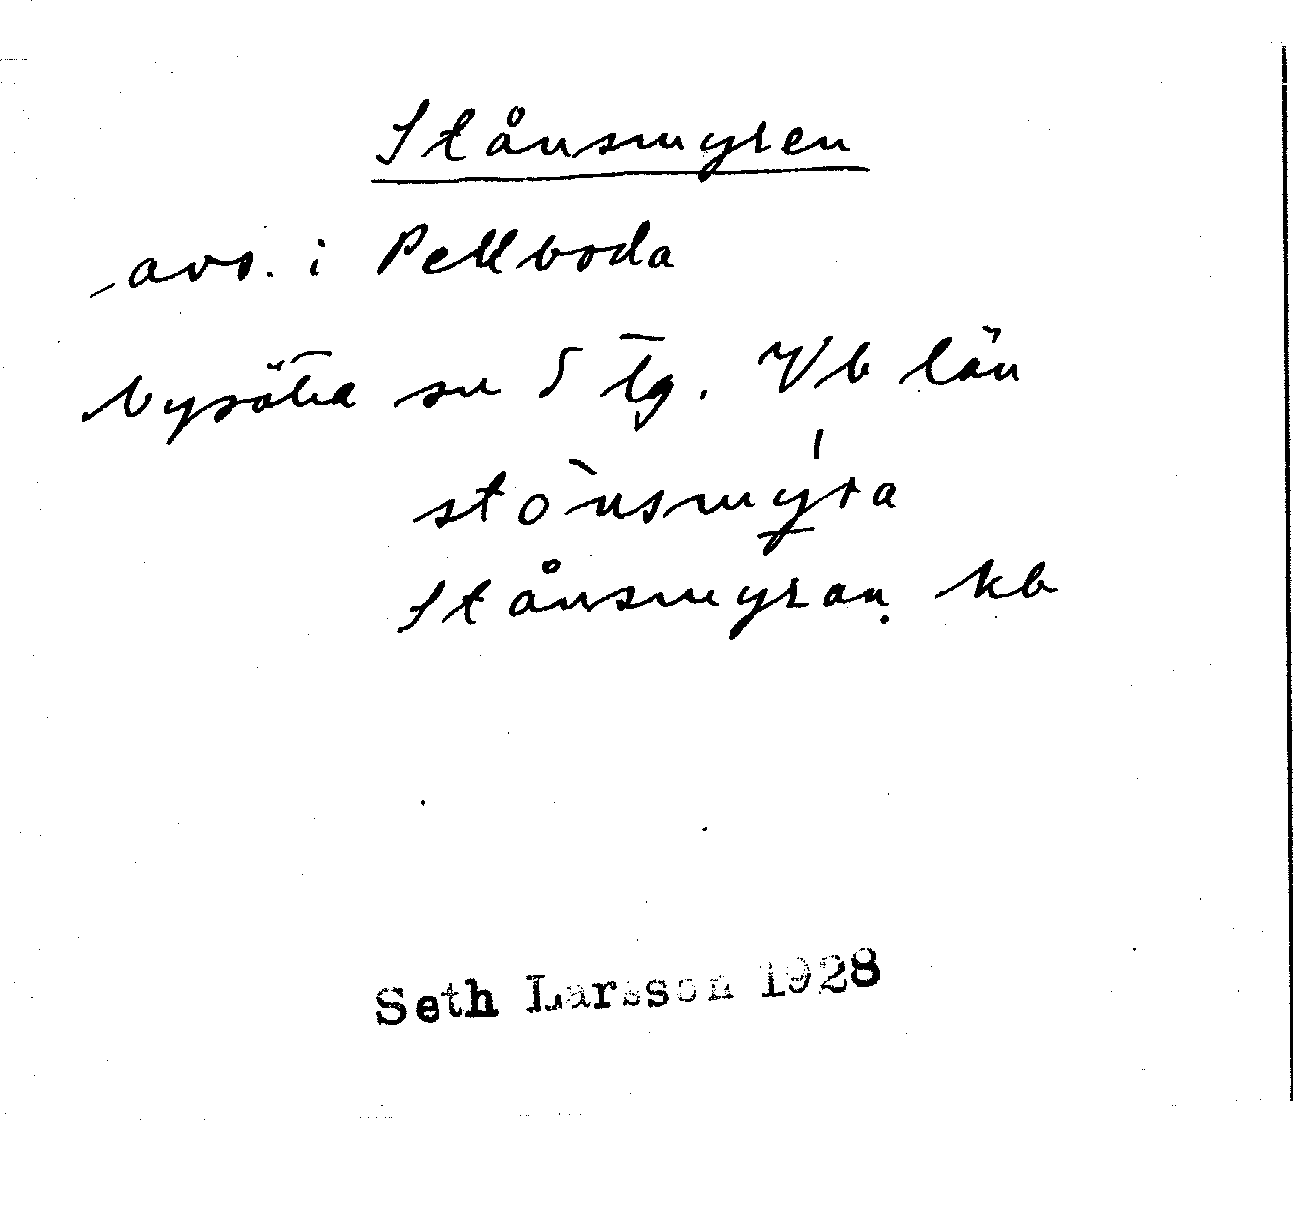 Stånsmyren
avs. i Pellboda
Bygdeå sn S tg. Vb län
stònsmy̱ra
Stånsmyran kb
Seth Larsson 1928